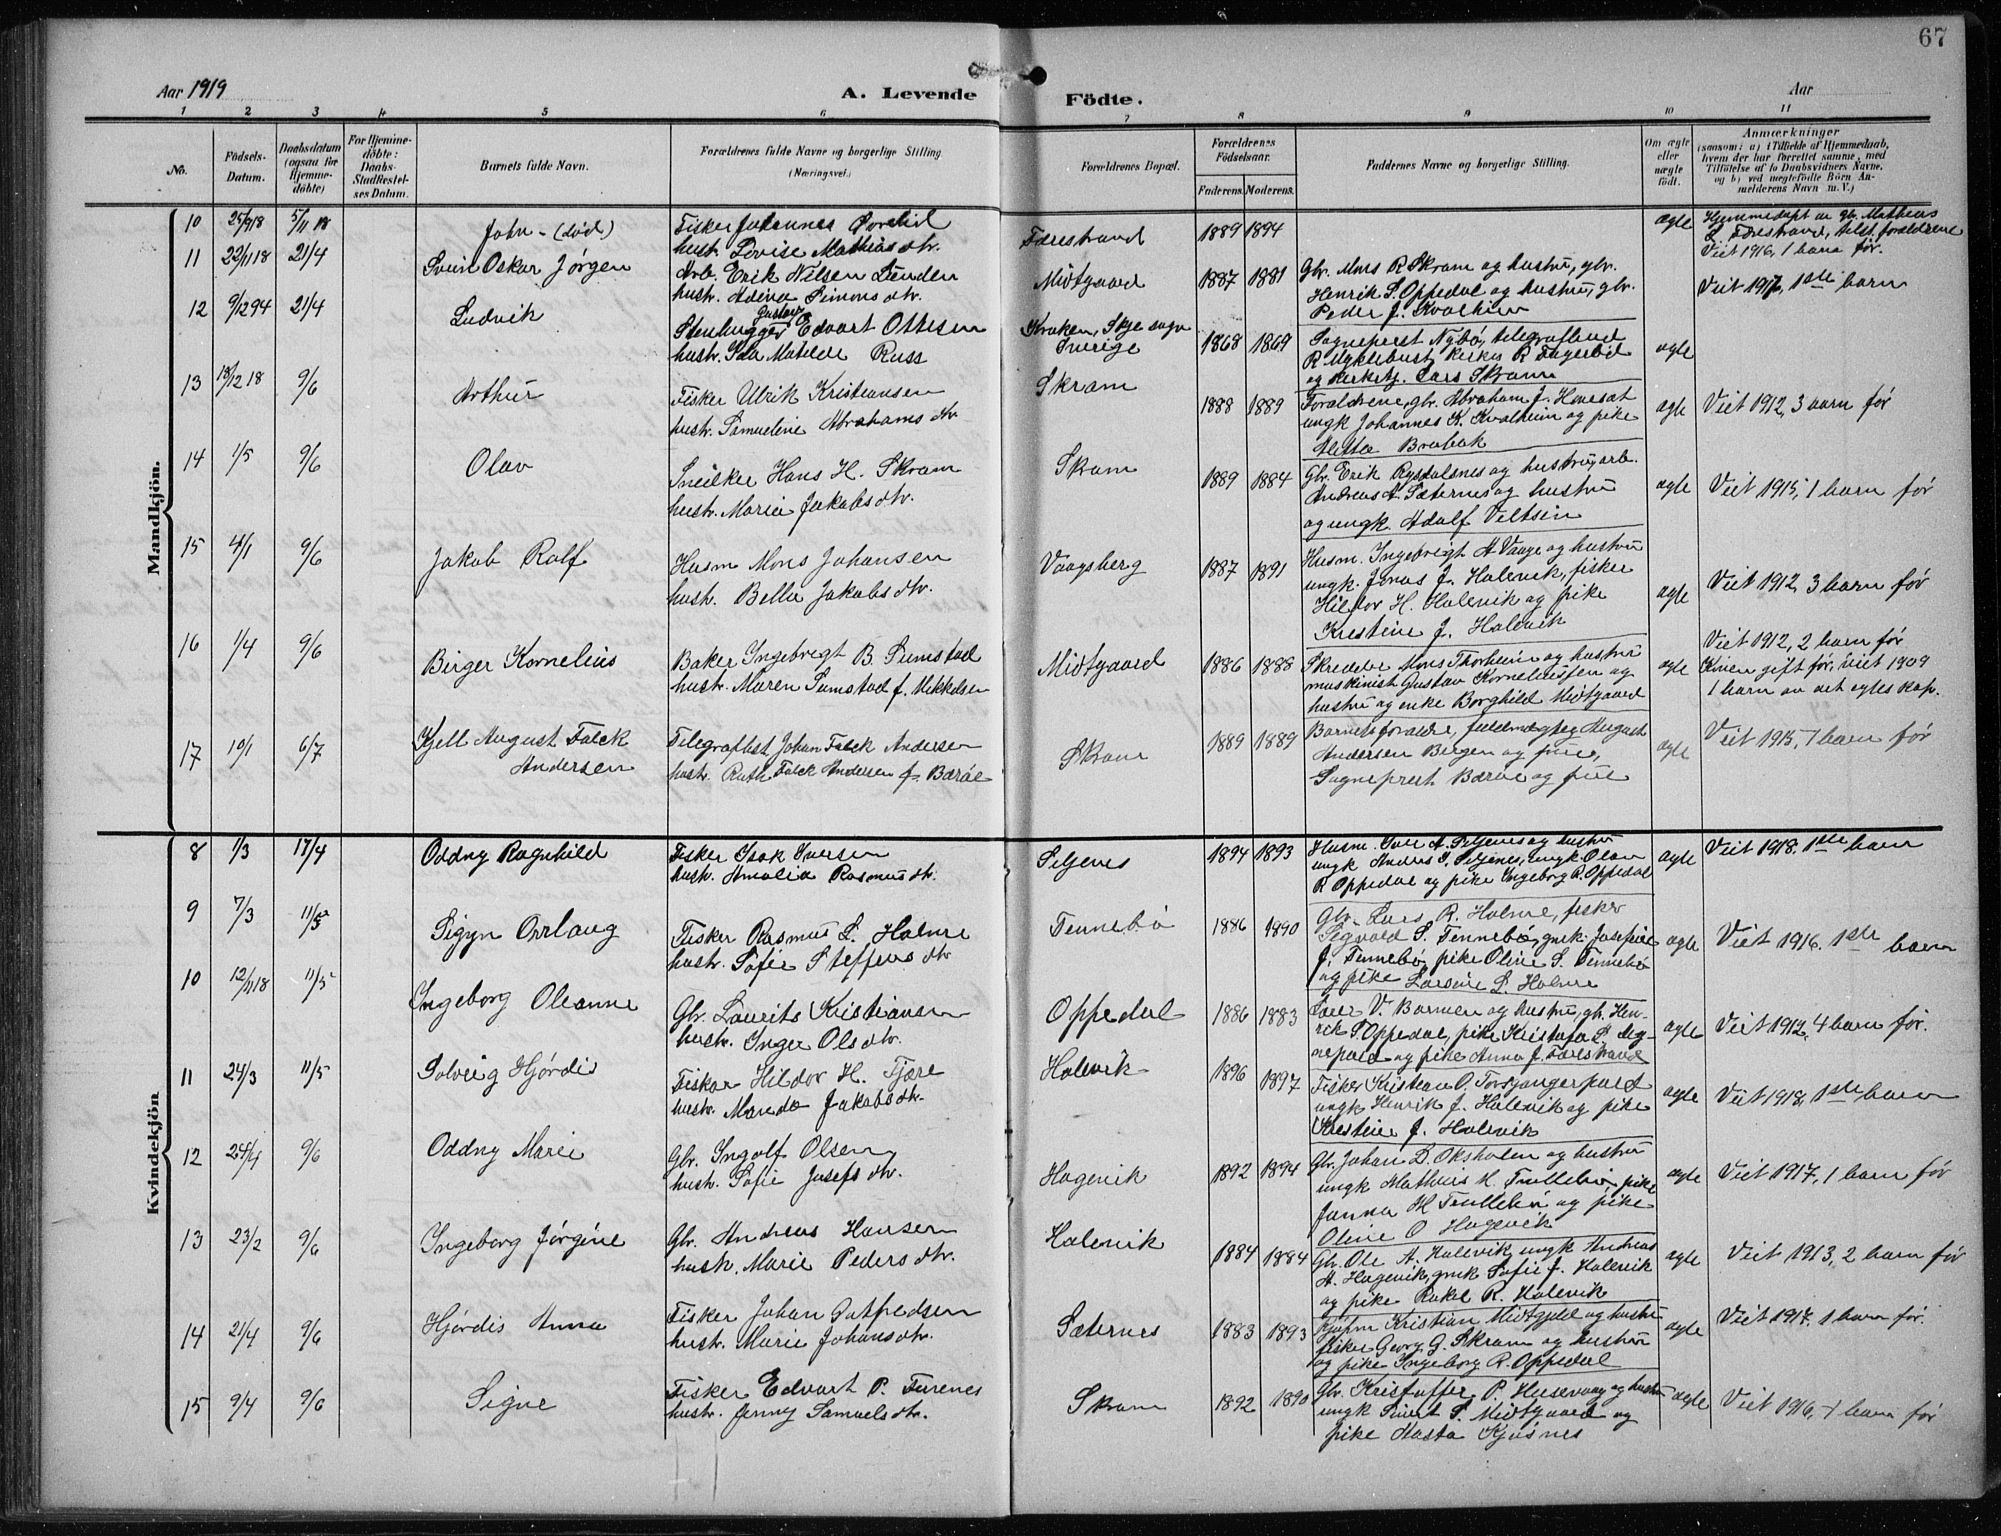 67
Aar 1919
A. Levende
Födte.
Aar
1 2 3 4 5 6 7 8 9 10 11
No.
Födsels-Datum.
Daabsdatum (ogsaa for Hjemmedöbte)
For Hjemmedöbte: Daabs-Stadfestelses Datum.
Barnets fulde Navn.
Forældrenes fulde Navne og borgerlige Stilling.
(Næringsvei.)
Forældrenes Bopæl.
Forældrenes Födselsaar.
Faderens. Moderens.
Faddernes Navne og borgerlige Stilling.
Om ægte eller uægte födt.
Anmærkninger
(saasom: a) i Tilfælde af Hjemmedaab, hvem der har forrettet samme, med Tilföielse af to Daabsvidners Navne, og b) ved uægtefödte Börn Anmelderens Navn m. V.)
Mandkjön.
10 25/9 18 5/11 18 John - (död.)
Fisker Johannes
hust. Lovise Mathiasdtr.
Færestrand 1889 1894 ægte
Hjemmedøpt av gb. Mathias
Færestrand, tilst. forældrene
Viet 1916, 1 barn før.
11 22/11 18 21/4 Svein Oskar Jørgen
Arb. Erik Nilsen Lunden
hust. Adina Simonsdtr.
Midtgaard 1887 1881
Gbr. Mons R Skram og hustru, gbr.
Henrik S. Oppedal og hustru, gbr.
Peder J. Kvalheim
Viet 1917, 1ste barn
12 9/12 94 21/4 Ludvik
Gustav
Stenhugger Edvart Ottesen
hust. Ida Matilde Russ
Kraken, Skje sogn
Sverige
1868 1869
Sogneprest Nybø, telegrafbud
R Myklebust, kirkv. R Fagerlid
og kirketj. Lars Skram
ægte
13 18/12 18 9/6 Arthur
Fisker Ulrik Kristiansen
hust. Samueline Abrahamsdtr
Skram 1888 1889
Forældrene, gbr. Abraham J. Hovesat
ungk Johannes K. Kvalheim og pike
Brubak
ægte Viet 1912, 3 barn før
14 1/5 9/6 Olav
Sneiker Hans H. Skram
hust. Marie Jakobsdtr.
Skram 1889 1884
Gbr. Erik Rysdalsnes og hustru, arb.
Andreas A. Sæternes og hustru
og ungk. Adolf
ægte Viet 1915, 1 barn før
15 4/1 9/6 Jakob Ralf
Husm Mons Johansen
hust. Bella Jakobsdtr.
Vaagsberg 1887 1891
Husm. Ingebrigt A Vaage og hustru
ungk. Jonas J. Halevik, fisker
Hildor H. Halevik og pike
Kristine J. Halevik
ægte Viet 1912, 3 barn før
16 1/4 9/6 Birger Kornelius
Baker Ingebrigt B. Sumstad
hust. Maren Sumstad f. Mikkelsen
Midtgaard 1886 1888
Skredder Mons Thorheim og hustru
maskinist Gustav Korneliussen og
hustru og enke Borghild Midtgaard
ægte
Viet 1912, 2 barn før
Konen gift før, viet 1909
1 barn av det egteskap.
17 10/1 6/7 Kjell August Falck
Andersen
Telegrafist Johan Falck Andersen
hust. Ruth Falck Andersen f. Barøe
Skram 1889 1889
Barnets forældre, August
Andersen Bergen og frue,
Sogneprest Barøe og frue
ægte Viet 1915, 1 barn før
Kvindekjön
8 1/3 17/4 Oddny Ragnhild
Fisker Isak Iversen
hust. Amalia Rasmusdtr.
Seljenes 1894 1893
Husm. Iver A Seljenes og hustru
ungk Anders S. Seljenes, ungk Olav
R Oppedal og pike Ingeborg R. Oppedal
ægte Viet 1918, 1ste barn
9 7/3 11/5 Sigyn Orrlaug
Fisker Rasmus L. Holme
hust. Sofie Steffensdtr
Tennebø 1886 1890
Gbr. Lars R. Holme, fisker
Sigvald S. Tennebø, gmk. Josefine
J. Tennebø, pike Oline S. Tennebø
og pike Larsine L. Holme
ægte Viet 1916, 1ste barn
10 12/11 18 11/5 Ingeborg Oleanne
Gbr. Laurits Kristiansen
hust. Inger Olsdtr.
Oppedal 1886 1883
V. Barmen og hustru, gb. Hen-
rik S. Oppedal, pike Kristofa
og pike Anna J. Færestrand
ægte Viet 1912, 4 barn før.
11 24/3 11/5 Solveig Hjørdis
Fisker Hildor H. Tjære
hust. Manda Jakobsdtr.
Halevik 1896 1897
Fisker Kristian O.
ungk Henrik J. Halevik og pike
Kristine J. Halevik
ægte Viet 1918, 1ste barn
12 24/4 9/6 Oddny Marie
Gbr. Ingolf Olsen
hust. Sofie Josefsdtr.
Hagevik 1892 1894
Gbr. Johan D. Oksholm og hustru
ungk Mathias M. Trollebø, pike
Janna M Trollebø og pike
Oline O Hagevik
ægte Viet 1917, 1 barn før
13 23/2 9/6 Ingeborg Jørgine
Gbr. Andreas Hansen
hust. Marie Pedersdtr.
Halevik 1884 1884
Gbr. Ole A. Halevik, ungk Andreas
A. Hagevik, gmk Sofie J. Halevik
og pike Rakel R. Halevik
ægte Viet 1913, 2 barn før
14 21/4 9/6 Hjørdis Anna
Fisker Johan Gotfredsen
hust. Marie Johansdtr.
Sæternes 1883 1893
Kristian Midtgjeld og hustru
fisker Georg G. Skram og hustru
og pike Ingeborg R. Oppedal
ægte Viet 1917, 1 barn før.
15 9/4 9/6 Signe
Fisker Edvart P. Furenes
hust. Jenny Samuelsdtr.
Skram 1892 1890
Gbr. Kristoffer P. Husevaag og hustru
ungk Sivert S. Midtgaard og
pike Kjøsnes
ægte Viet 1916, 1 barn før